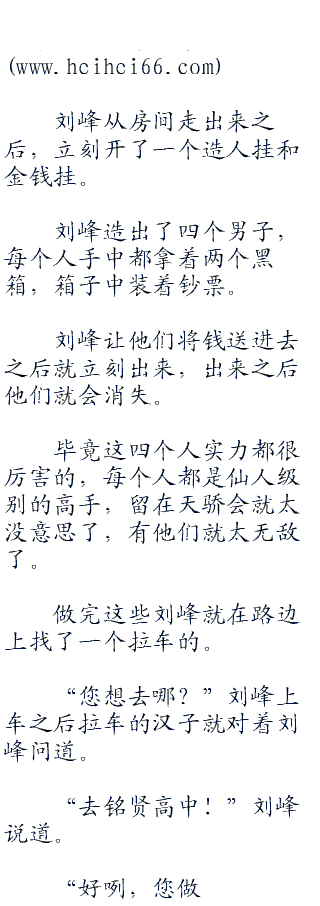 (www.hcihci66.com)
刘峰从房间走出来之
后，立刻开了一个造人挂和
金钱挂。
刘峰造出了四个男子，
每个人手中都拿着两个黑
箱，箱子中装着钞票。
刘峰让他们将钱送进去
之后就立刻出来，出来之后
他们就会消失。
毕竟这四个人实力都很
厉害的，每个人都是仙人级
别的高手，留在天骄会就太
没意思了，有他们就太无敌
了。
做完这些刘峰就在路边
上找了一个拉车的。
“您想去哪？”刘峰上
车之后拉车的汉子就对着刘
峰问道。
“去铭贤高中！”刘峰
说道。
“好咧，您做